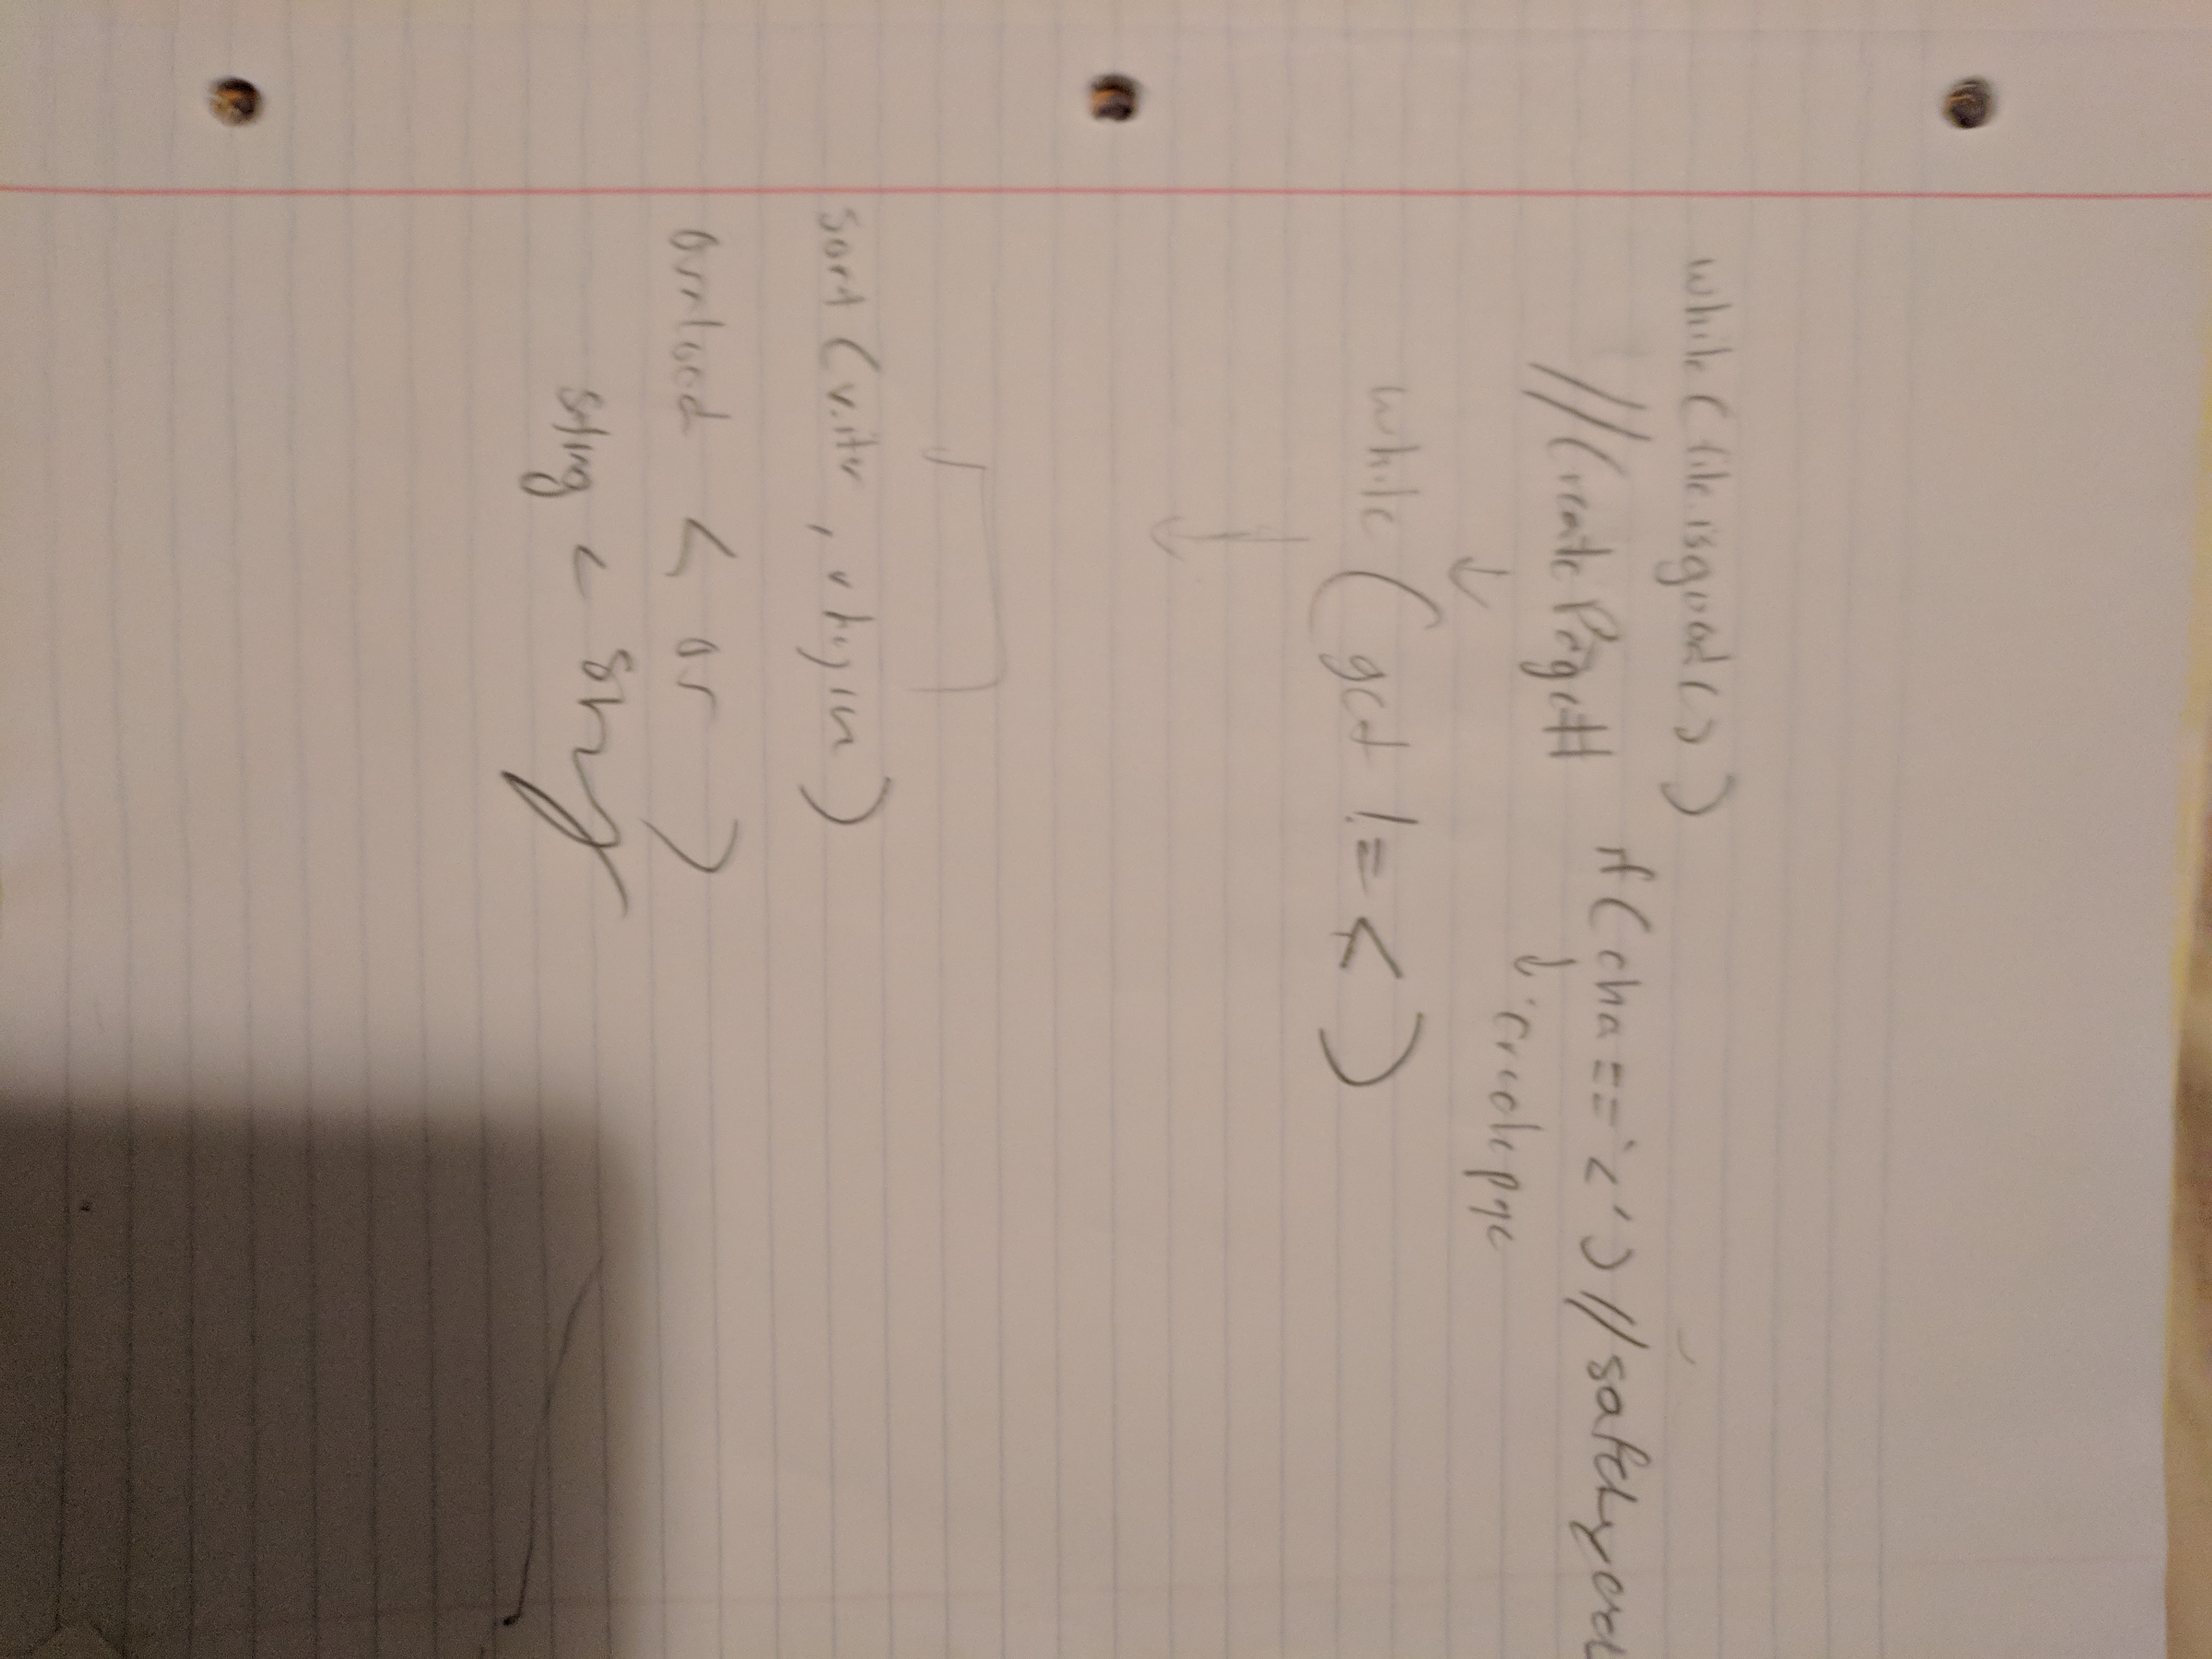 while (file.isgood())
//Create Page# if (cha == '<') // safelyread
↓ ↓ create page
while (get != <)
↓
sort (v.iter, v.begin)
overload < or >
string < string